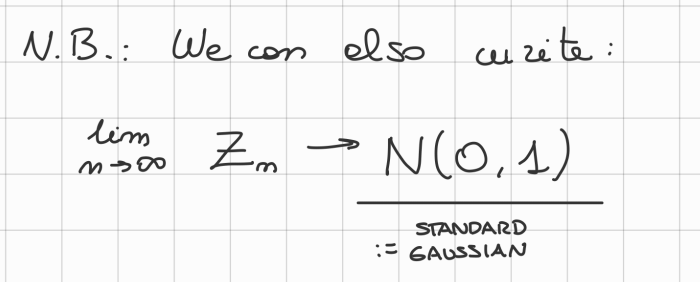 N.B.: We can also write:
lim Zn → N(0,1)
n→∞
STANDARD
:= GAUSSIAN